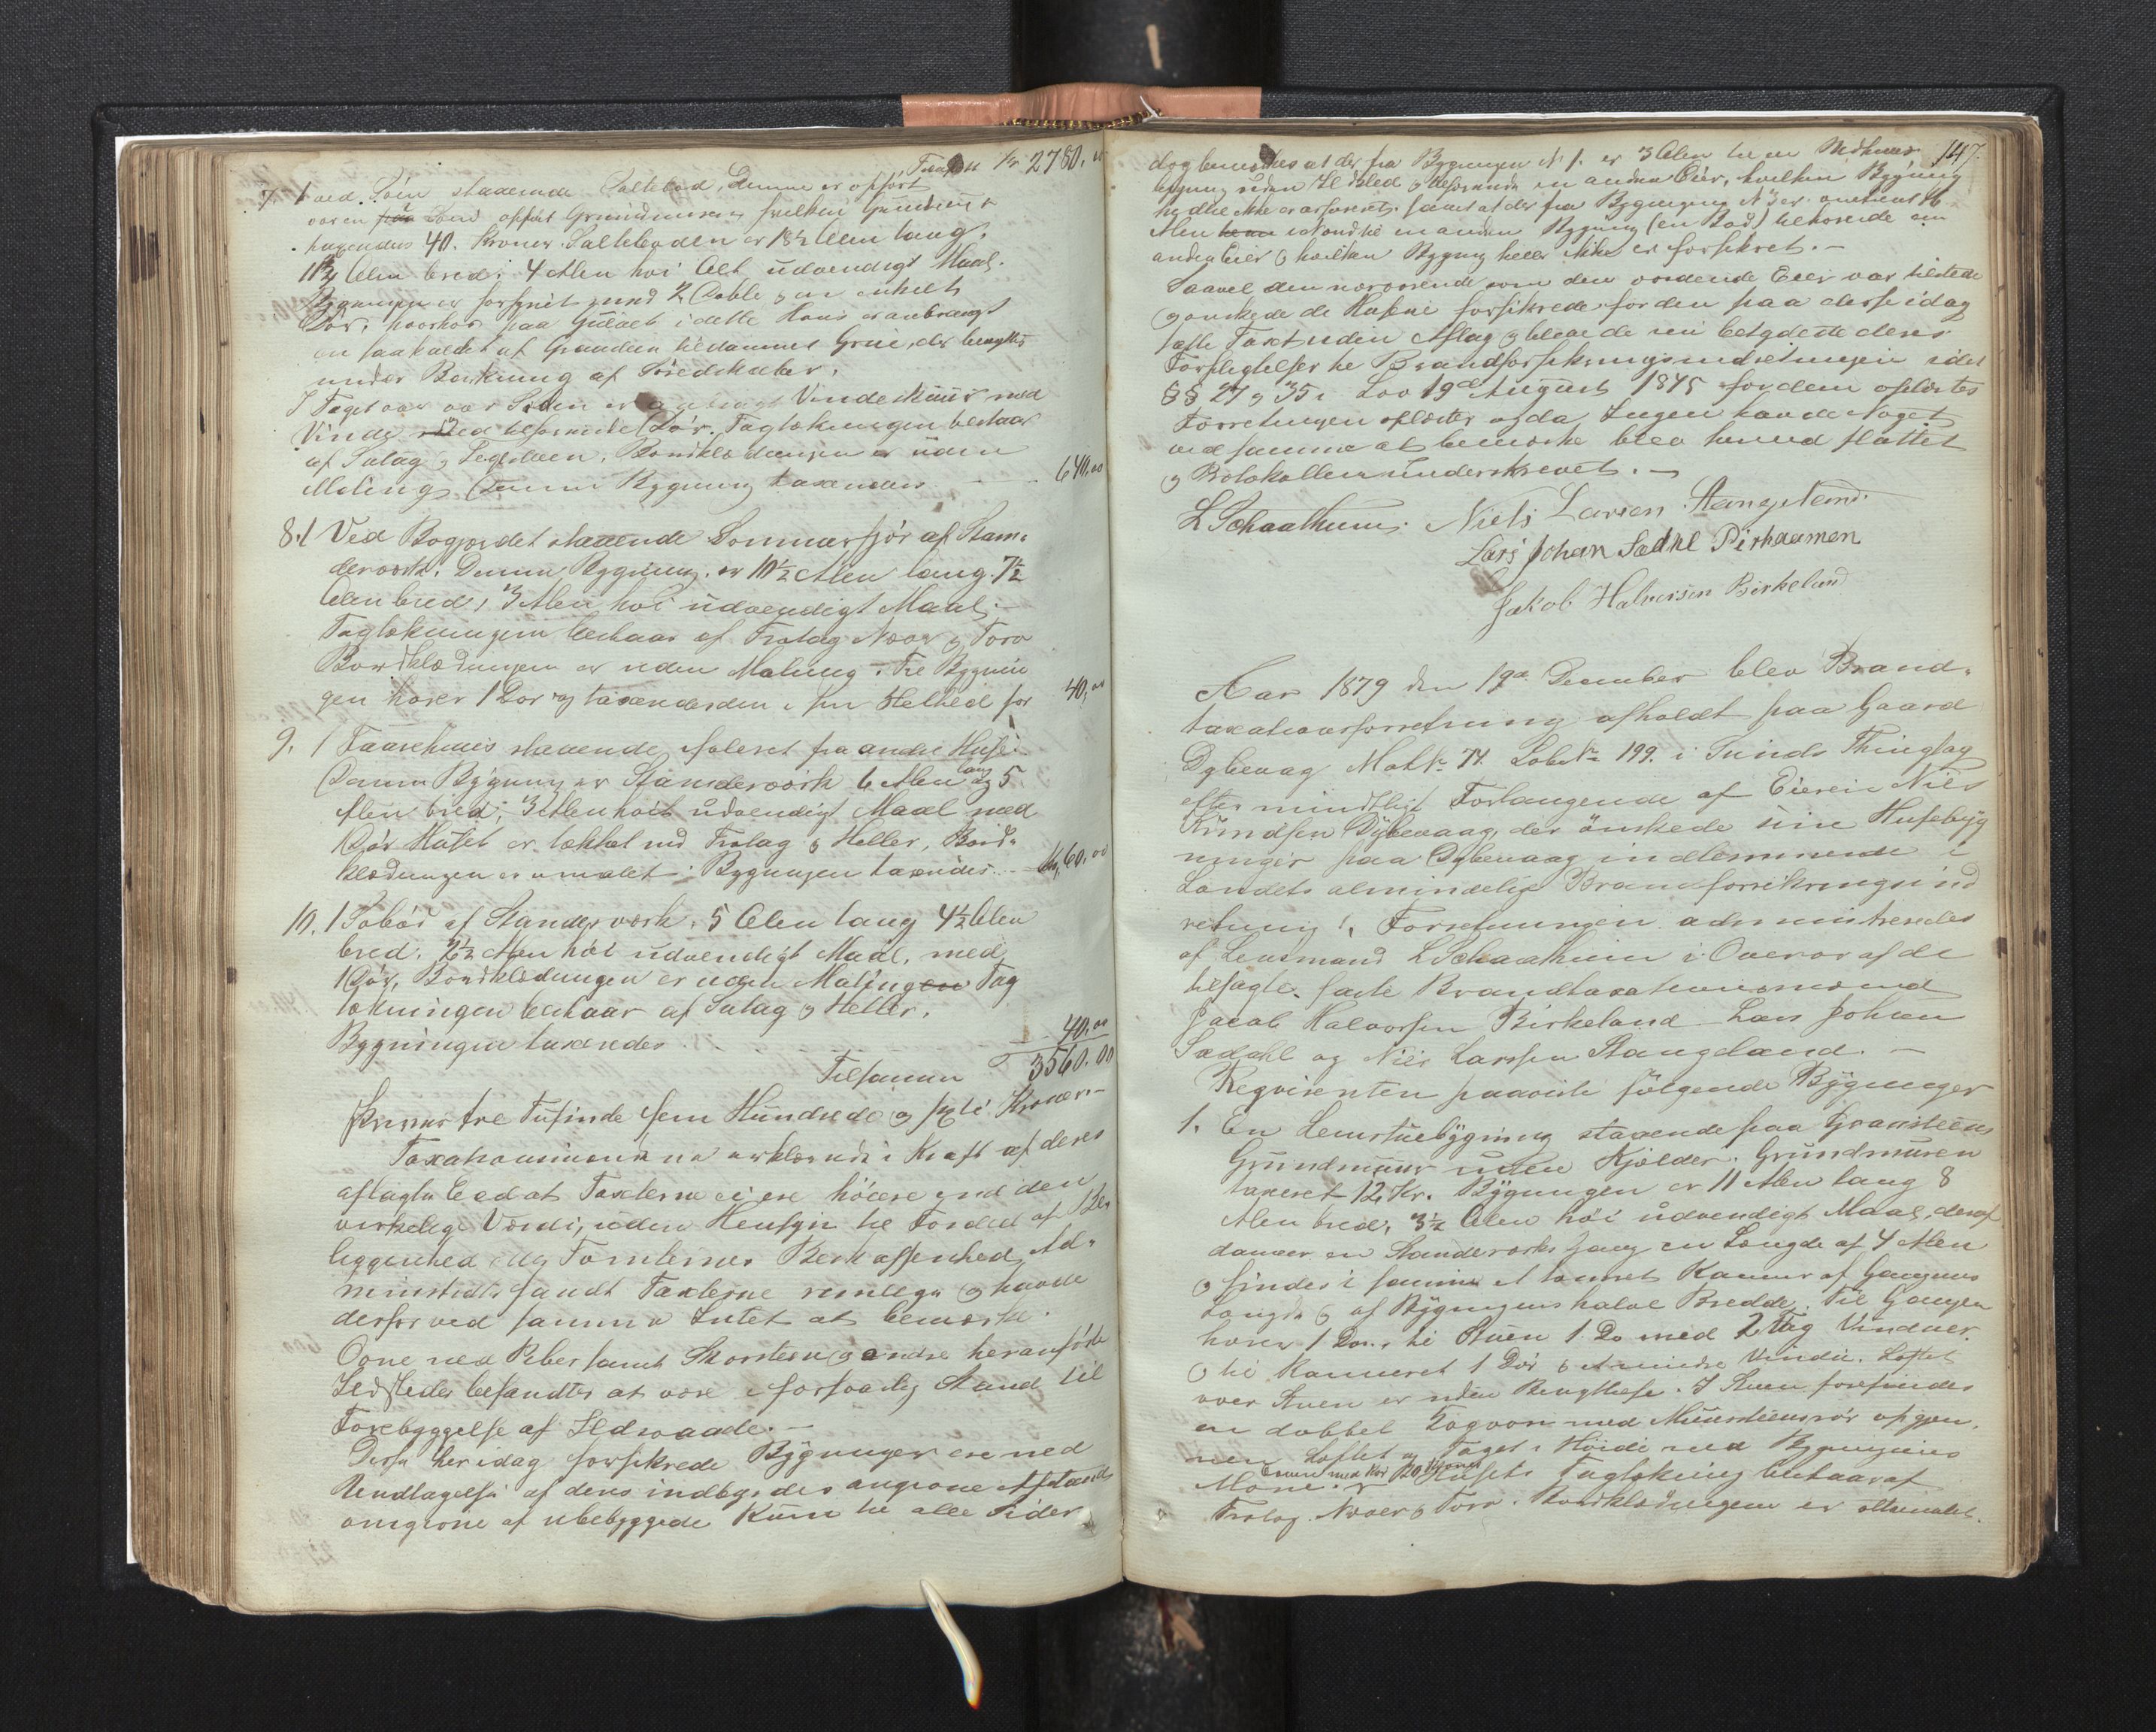 Transport Kr 2780,00
7. 1 ved Søen staaende Saltebod, denne er opført
over en i Søen opført Grundmuur, hvilken Grundmuur
taxeredes 40. Kroner. Salteboden er 18½ Alen lang.
11¾ Alen bred; 4 Alen høi Alt udvendigt Maal.
Bygningen er forsynet med 2 Doble og en enkelt
Dør, hvorhos paa Gulvet i dette Huus er anbragt
en saakaldet af Graasteen Grue, der benyttes
under Barkning af Søredskaber.
I Taget over Søen er anbragt Vindeskuur med
Vinde med tilhørende Dør. Taglækningen bestaar
af Sutag og Teglsteen. Bordklædningen er uden
Maling. Denne Bygning taxeredes 640,00
8. 1 Ved Bøgjærdet staaende Sommerfjør af Stan-
derværk. Denne Bygning er 10½ Alen lang. 7½
Alen bred, 3 Alen høi udvendigt Maal.
Taglækningen bestaar af Trotag Næver og Torv
Bordklædningen er uden Maling. Til Bygnin
gen hører 1 Dør og taxeredes den i sin Helhed for 40,00
9. 1 Faarehuus staaende isoleret fra andre Huse.
Denne Bygning er Standerværk 6 Alen lang og 5
Alen bred; 3 Alen høit udvendigt Maal med
1 Dør. Huset er tækket med Trotag og Heller, Bord-
klædningen er umalet. Bygningen taxeredes Kr 60,00
10. 1 Søbod af Standerværk. 5 Alen lang 4½ Alen
bred. 2½ Alen høi udvendigt Maal, med
1 Dør, Bordklædningen er uden Maling Tag
lækningen bestaar af Sutag og Heller.
Bygningen taxeredes 40,00
Tilsammen 3560.00
skriver tre Tusinde fem Hundrede og sexti Kroner.
Taxationsmændene erklærede i Kraft af deres
aflagte Eed at Taxterne ei ere høiere end den
virkelige Værdi, uden Hensyn til Fordel af Be-
liggenhed eller Tomternes Beskaffenhed. Ad-
ministrator fandt Taxterne rimelige og havde
derfor ved samme Intet at bemærke.
Ovne med Piber samt Skorsteen og andre heranførte
Ildsteder befandtes at være i forsvarlig Stand til
Forebyggelse af Ildsvaade.
Disse her idag forsikrede Bygninger ere med
Undtagelse af deres indbyrdes angivne Afstand
omgivne af ubebyggede Rum til alle Sider
147.
dog bemærkes at der fra Bygningen N 1. er 3 Alen til en
bygning uden Ildsted og tilhørende en anden Eier, hvilken Bygning
ikke er assureret, samt at der fra Bygningen N
Alen til en anden Bygning (en Bod) tilhørende en
anden Eier og hvilken Bygning heller ikke er forsikret.
Saavel den nærværende som den vordende Eier var tilstede
og ønskede de Husene forsikrede for den paa disse idag
satte Taxt uden Aftag og bleve de betydede deres
Forpligtelser til Brandforsikringsindretningen idet
§§ 27 og 35 i Lov 19de August 1845 for dem oplæstes
Forretningen oplæstes og da Ingen havde Noget
ved samme at bemærke blev hermed sluttet
og Protokollen underskrevet.
L Schaathun. Niels Larsen Stangeland.
Lars Johan Sædhl
Jakob Halversen Birkeland
Aar 1879 den 19de December blev Brand-
taxationsforretning afholdt paa Gaard
Dybevaag Mat.No 74. LøbeNo 199. i Finds Thinglag
efter mundtligt Forlangende af Eieren Niels
Knudsen Dybevaag, der ønskede sine Husebyg
ninger paa Dybevaag indlemmede i
Landets almindelige Brandforsikringsind
retning. Forretningen administreredes
af Lensmand L Schaathun i Overvær af de
tilsagte faste Brandtaxationsmænd
Jacob Halvorsen Birkeland Lars Johan
Sædahl og Niels Larssen Stangeland.
Reqvirenten paaviste følgende Bygninger
1. En Lemstuebygning staaende paa Graasteens
Grundmuur uden Kjælder. Grundmuren
taxeret 12. Kr. Bygningen er 11 Alen lang 8
Alen bred, 3½ Alen høi udvendigt Maal, deraf
danner en Standerværks Gang en Længde af 4 Alen
og findes i samme et Kammer af Gangens
Længde og af Bygningens halve Bredde. Til Gangen
hører 1 Dør, til Stuen 1 Do med 2 Fag Vinduer
og til Kammeret 1 Dør og et mindre Vindue. Loftet
over Stuen er uden Benyttelse. I Stuen forefindes
en dobbel Kogovn med Muursteensrør opgjen-
nem Loftet og Taget i Høide med Bygningens
Møne. Husets Taglækning bestaar af
Trotag. Næver og Torv. Bordklædningen er